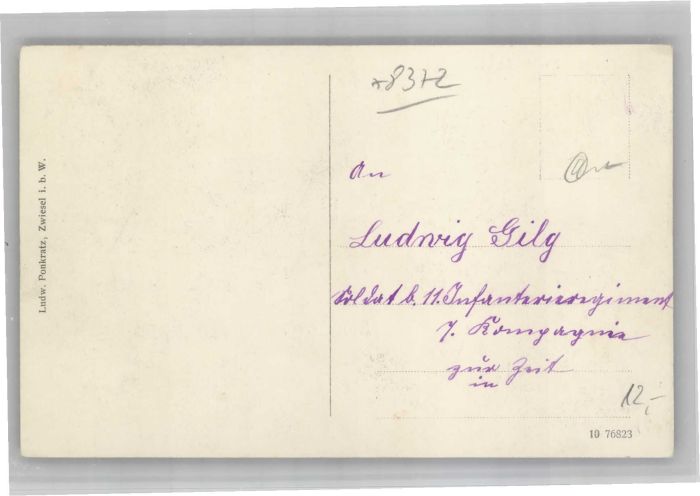 Ludw. Ponkratz, Zwiesel i. b. W.
*8372
An
Ludwig Gilg
Soldat b. 11. Infanterieregiment
7. Kompagnie
zur Zeit
in
12,-
19 76823